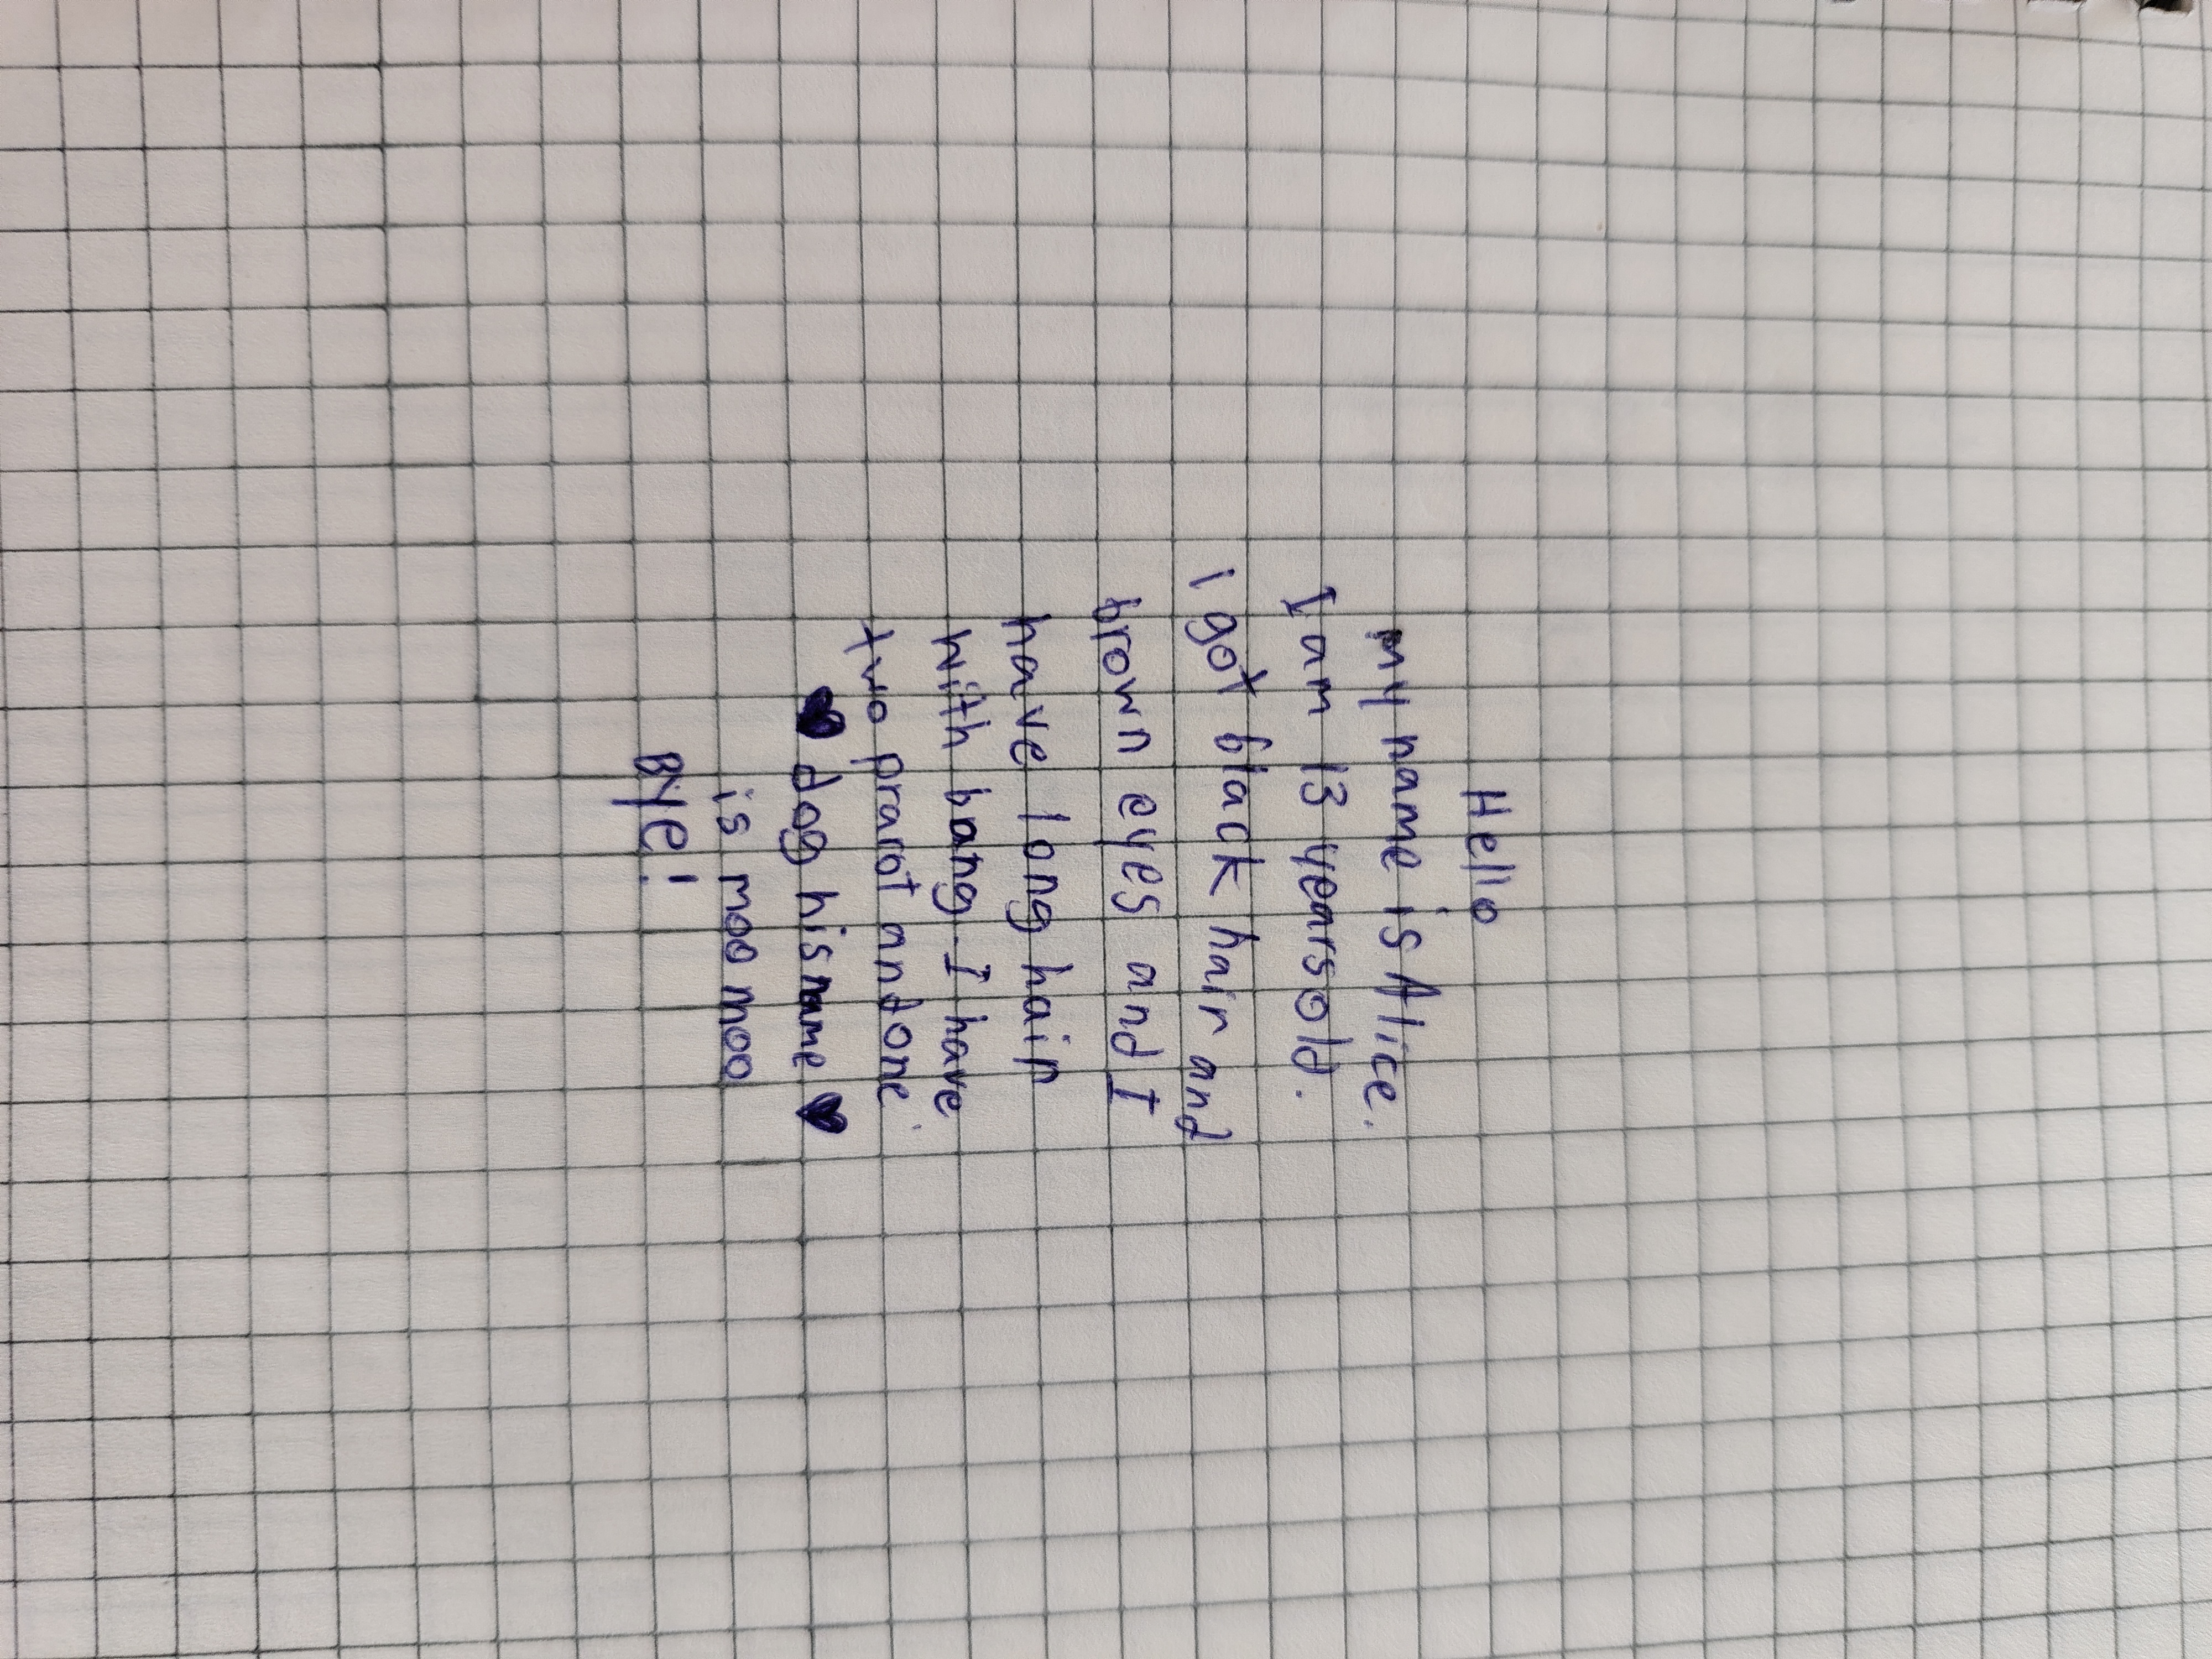 Hello
my name is Alice.
I am 13 years old.
I got black hair and
brown eyes and I
have long hair
with bang. I have
two prarot and one.
♥ dog his name ♥
is moo moo
Bye!